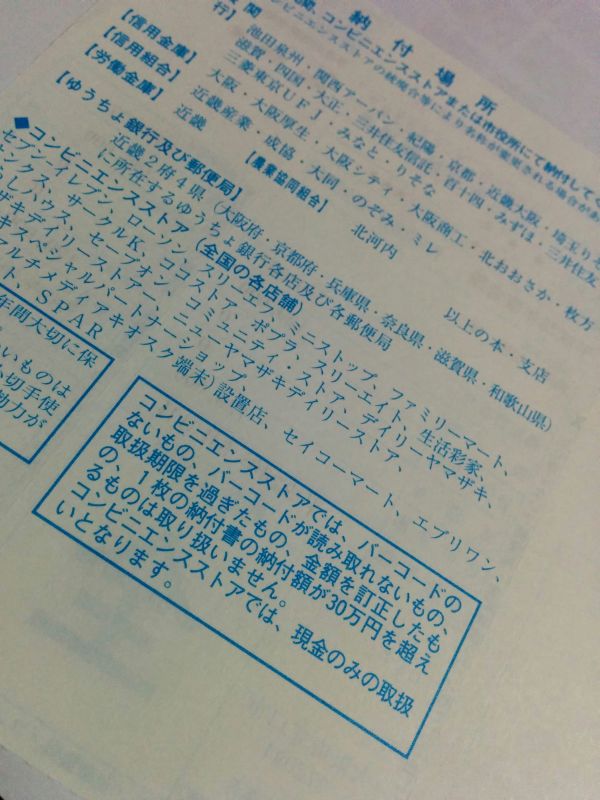 納付場所
、コンビニエンスストアまたは市役所にて納付してく
ビニエンスストアの統廃合等により名称が変更される場合があ
機関
行】
池田泉州・関西アーバン・紀陽・京都・近畿大阪・埼玉りそ
滋賀・四国・大正・三井住友信託・百十四・みずほ・三井住友
三菱東京UFJ・みなと・りそな
【信用金庫】
大阪・大阪厚生・大阪シティ・大阪商工・北おおさか・枚方
【信用組合】
近畿産業・成協・大同・のぞみ・ミレ
【労働金庫】
近畿
【農業協同組合】
北河内
以上の本・支店
【ゆうちょ銀行及び郵便局】
近畿2府4県(大阪府・京都府・兵庫県・奈良県・滋賀県・和歌山県)
に所在するゆうちょ銀行各店及び各郵便局
■コンビニエンスストア(全国の各店舗)
セブンイレブン、ローソン、スリーエフ、ミニストップ、ファミリーマート、
ンクス、サークルK、ココストア、ポプラ、スリーエイト、生活彩家、
らし
ハウス、セーブオン、コミュニティ・ストア、デイリーヤマザキ、
ザキデイリーストアー、ニューヤマザキデイリーストア、
キスペシャルパートナーショップ、
アルチメディアキオスク端末)設置店、セイコーマート、エブリワン、
ト、SPAR
年間大切に保
ないものは
切手使
効力が
コンビニエンスストアでは、バーコードの
ないもの、バーコードが読み取れないもの、
取扱期限を過ぎたもの、金額を訂正したも
の、1枚の納付書の納付額が30万円を超え
るものは取り扱いません。
コンビニエンスストアでは、現金のみの取扱
いとなります。